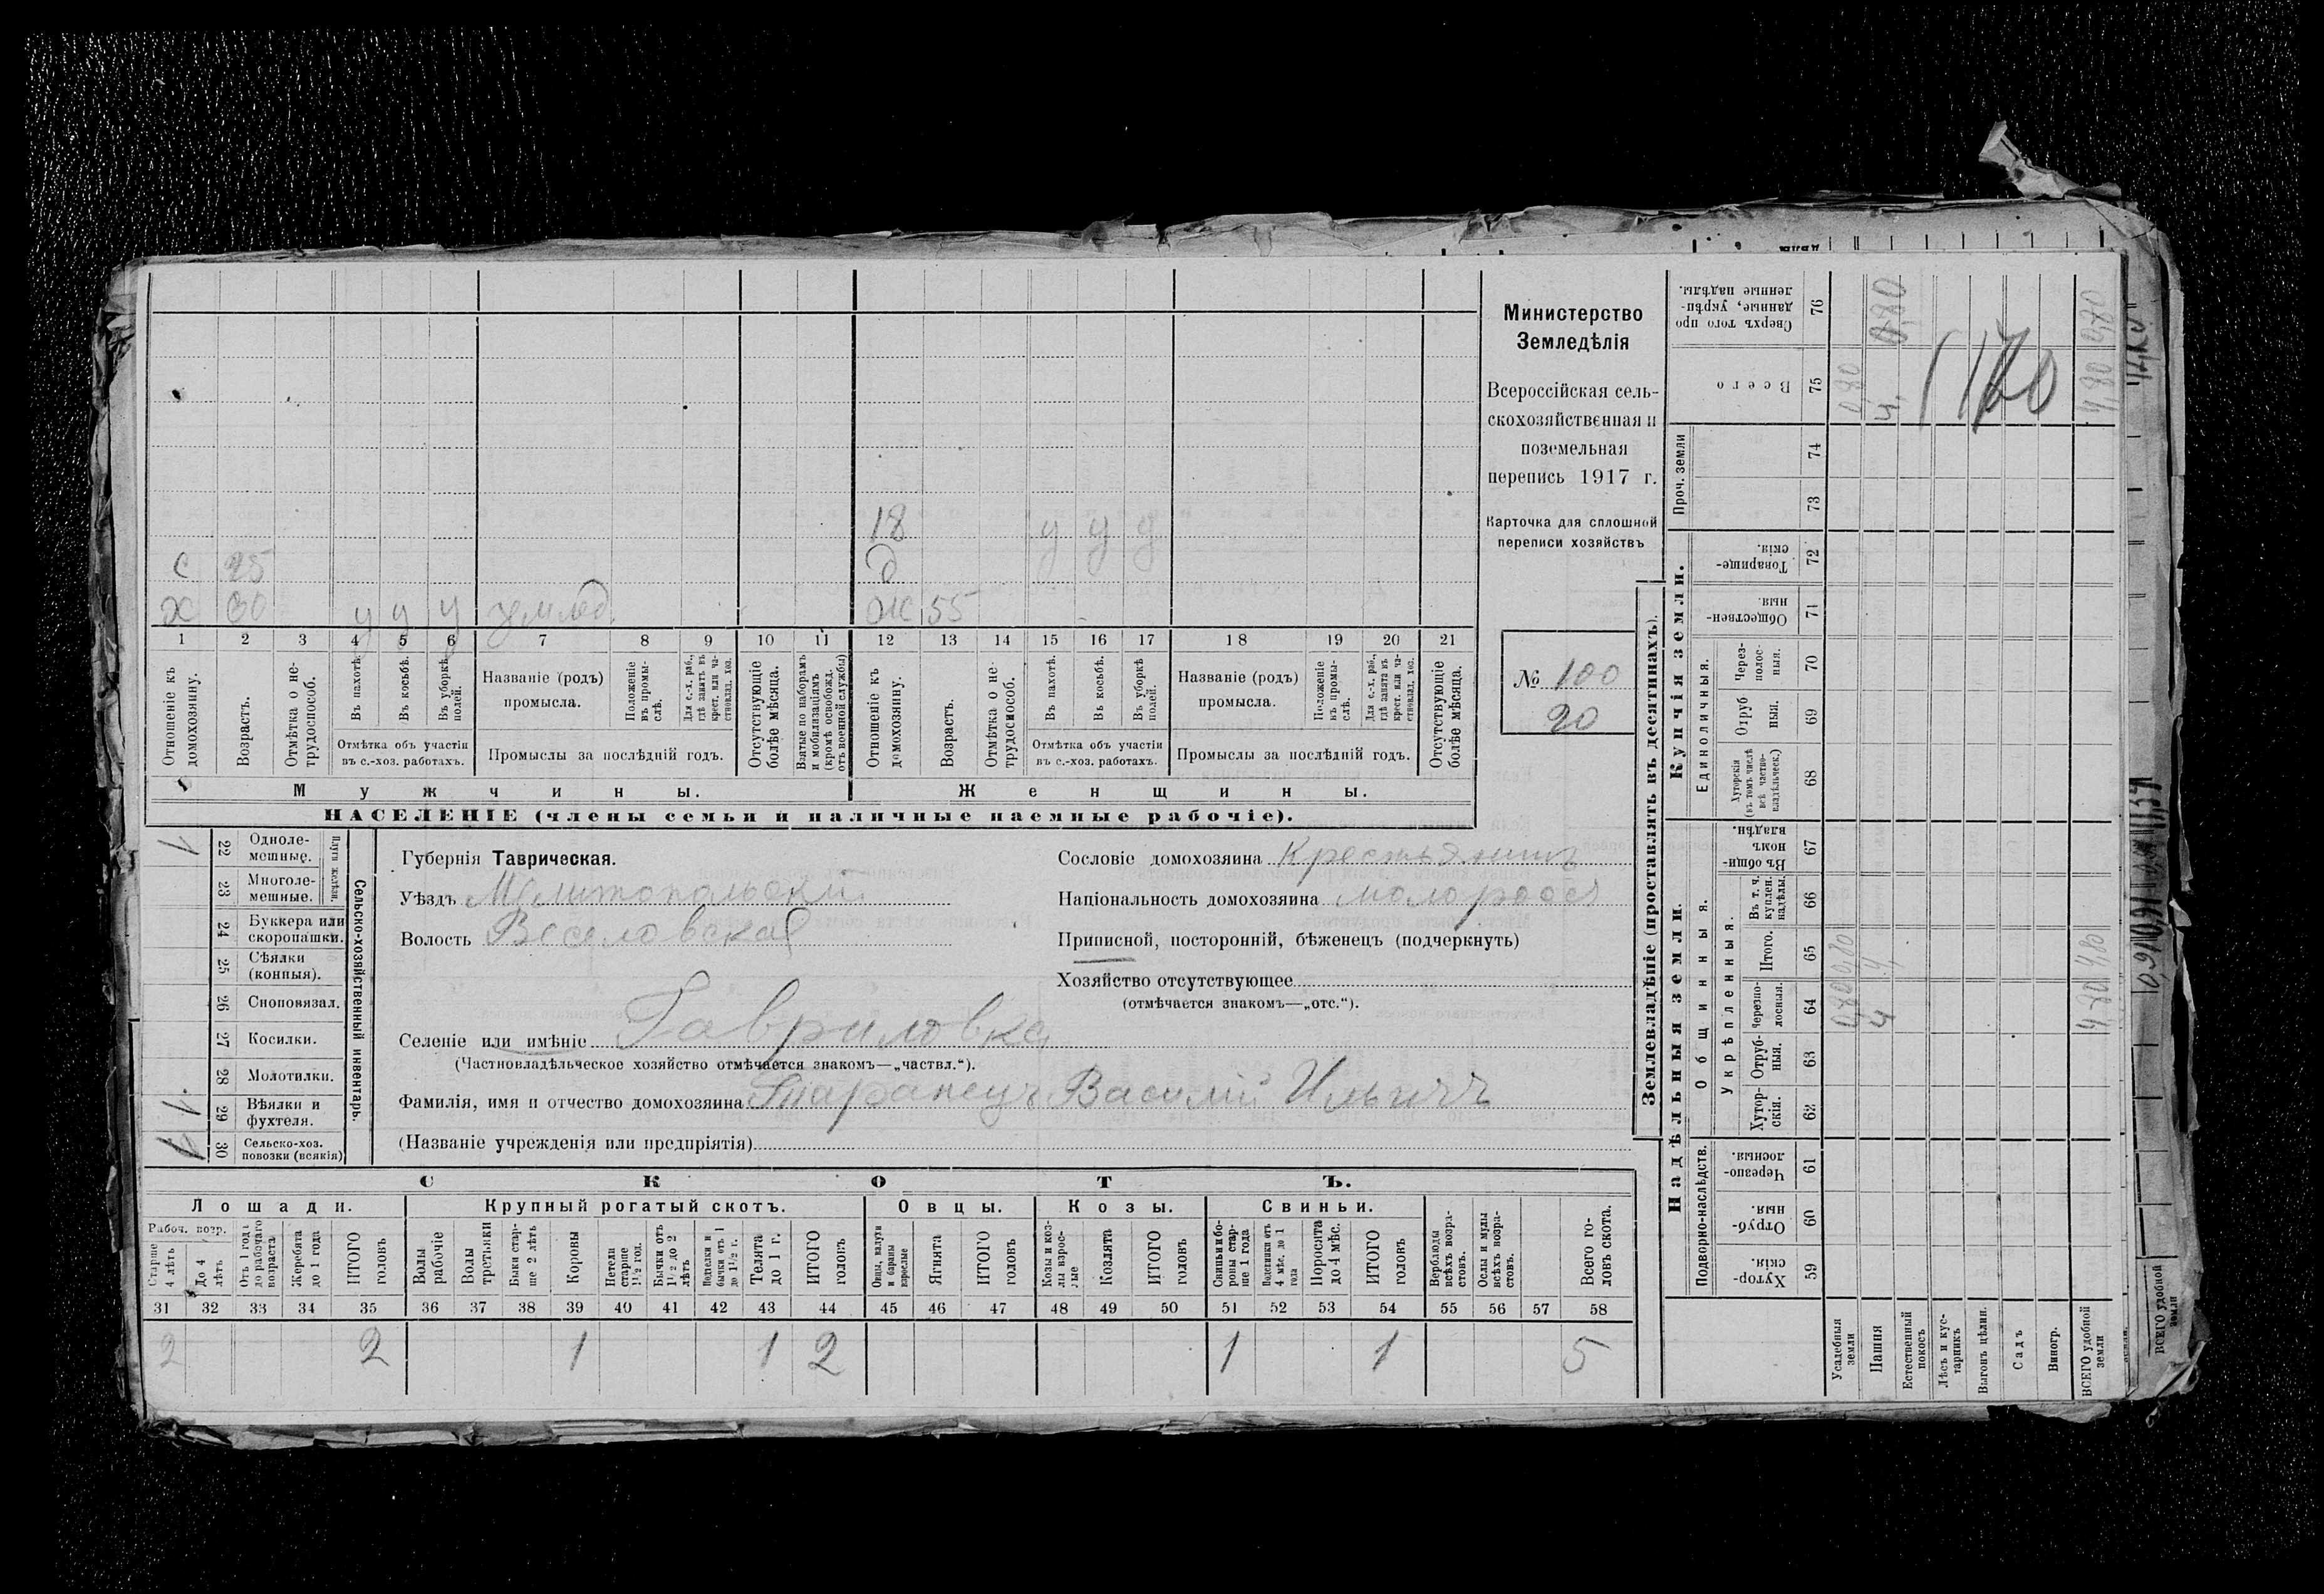 Министерство
Земледѣлія
Всероссійская сель-
скохозяйственная и
поземельная
перепись 1917 г.
Карточка для сплошной
переписи хозяйствъ
№ 100
20
18
у у у
С
д
Х у у у
Ж 55
1 2 3 4 5 6 7 8 9 10 11 12 13 14 15 16 17 18 19 20 21
Отношеніе къ домохозяину.
Возрастъ.
Отмѣтка о не-трудоспособ.
Въ пахотѣ.
Въ косьбѣ.
Въ уборкѣ полей.
Отмѣтка объ участіи
въ с.-хоз. работахъ.
Названіе (родъ)
промысла.
Положеніе въ промы-слѣ.
Для с.-х. раб., гдѣ занятъ въ крест. или ча-стновлад. хоз.
Промыслы за послѣдній годъ.
Отсутствующіе болѣе мѣсяца.
Взятые по наборамъ и мобилизаціямъ (кромѣ освобожд. отъ военной службы)
Отношеніе къ домохозяину.
Возрастъ.
Отмѣтка о не-трудоспособ.
Въ пахотѣ.
Въ косьбѣ.
Въ уборкѣ полей.
Отмѣтка объ участіи
въ с.-хоз. работахъ.
Названіе (родъ)
промысла.
Положеніе въ промы-слѣ.
Для с.-х. раб., гдѣ занята въ крест. или ча-стновлад. хоз.
Промыслы за послѣдній годъ.
Отсутствующіе болѣе мѣсяца.
Мужчины. Женщины.
НАСЕЛЕНІЕ (члены семьи и наличные наемные рабочіе).
Сельско-хозяйственный инвентарь.
Плуги желѣзн.
1 22 Одноле-мешные.
23 Многоле-мешные.
24 Буккера или скоропашки.
25 Сѣялки (конныя).
26 Сноповязал.
27 Косилки.
28 Молотилки.
1 29 Вѣялки и фухтеля.
30 Сельско-хоз. повозки (всякія)
Губернія Таврическая.
Уѣздъ Мелитопольскій
Волость Веселовская
Селеніе или имѣніе Гавриловка
(Частновладѣльческое хозяйство отмѣчается знакомъ—„частвл.“).
Фамилія, имя и отчество домохозяина Таранецъ Василій Ильичъ
(Названіе учрежденія или предпріятія)
Сословіе домохозяина Крестьянинъ
Національность домохозяина малороссъ
Приписной, посторонній, бѣженецъ (подчеркнуть)
Хозяйство отсутствующее
(отмѣчается знакомъ—„отс.“).
СКОТЪ.
Лошади. Крупный рогатый скотъ. Овцы. Козы. Свиньи.
Рабоч. возр.
Старше 4 лѣтъ
До 4 лѣтъ
Отъ 1 года до рабочаго возраста
Жеребята до 1 года
ИТОГО головъ
Волы рабочіе
Волы третьяки
Быки стар-ше 2 лѣтъ
Коровы
Нетели старше 1½ год.
Бычки отъ 1½ до 2 лѣтъ
Нетелки и бычки отъ 1 до 1½ г.
Телята до 1 г.
ИТОГО головъ
Овцы, валухи и бараны взрослые
Ягнята
ИТОГО головъ
Козы и коз-лы взрос-лые
Козлята
ИТОГО головъ
Свиньи и бо-ровы стар-ше 1 года
Подсвинки отъ 4 мѣс. до 1 года
Поросята до 4 мѣс.
ИТОГО головъ
Верблюды всѣхъ возра-стовъ.
Ослы и мулы всѣхъ возра-стовъ.
Всего го-ловъ скота.
31 32 33 34 35 36 37 38 39 40 41 42 43 44 45 46 47 48 49 50 51 52 53 54 55 56 57 58
2 2 1 1 2 1 1 5
Землевладѣніе (проставлять въ десятинахъ).
Надѣльныя земли. Купчія земли. Проч. земли
Подворно-наслѣдств.
Общинныя.
Укрѣпленныя.
Единоличныя.
Хутор-скія. 59
Отруб-ныя. 60
Черезпо-лосныя. 61
Хутор-скія. 62
Отруб-ныя. 63
Черезпо-лосныя. 64
Итого. 65
Въ т. ч. куплен. надѣлы. 66
Въ общин-номъ владѣн. 67
Хуторскія (въ томъ числѣ всѣ частно-владѣльческ.) 68
Отруб ныя. 69
Через-полос-ныя. 70
Обществен-ныя. 71
Товарище-скія. 72
73
74
Всего 75
Сверхъ того про данные, укрѣп-ленные надѣлы. 76
Усадебныя земли
Пашня 4 4 4,
Естественный покосъ
Лѣсъ и кус-тарникъ
Выгонъ цѣлин.
Садъ
Виногр.
ВСЕГО удобной земли
ВСЕГО удобной земли